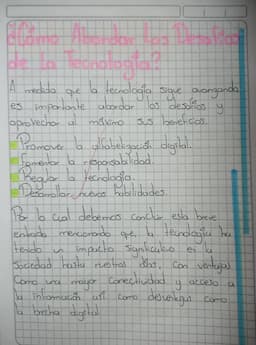 ¿Cómo Abordar los Desafíos
de la Tecnología?
A medida que la tecnología sigue avanzando
es importante abordar los desafíos y
aprovechar al máximo sus beneficios.
Promover la alfabetización digital.
Fomentar la responsabilidad.
Regular la tecnología.
Desarrollar nuevas habilidades.
Por lo cual debemos concluir esta breve
entrada mencionando que, la tecnología ha
tenido un impacto significativo en la
sociedad hasta nuestros días, con ventajas
como una mayor conectividad y acceso a
la información así como desventajas como
la brecha digital